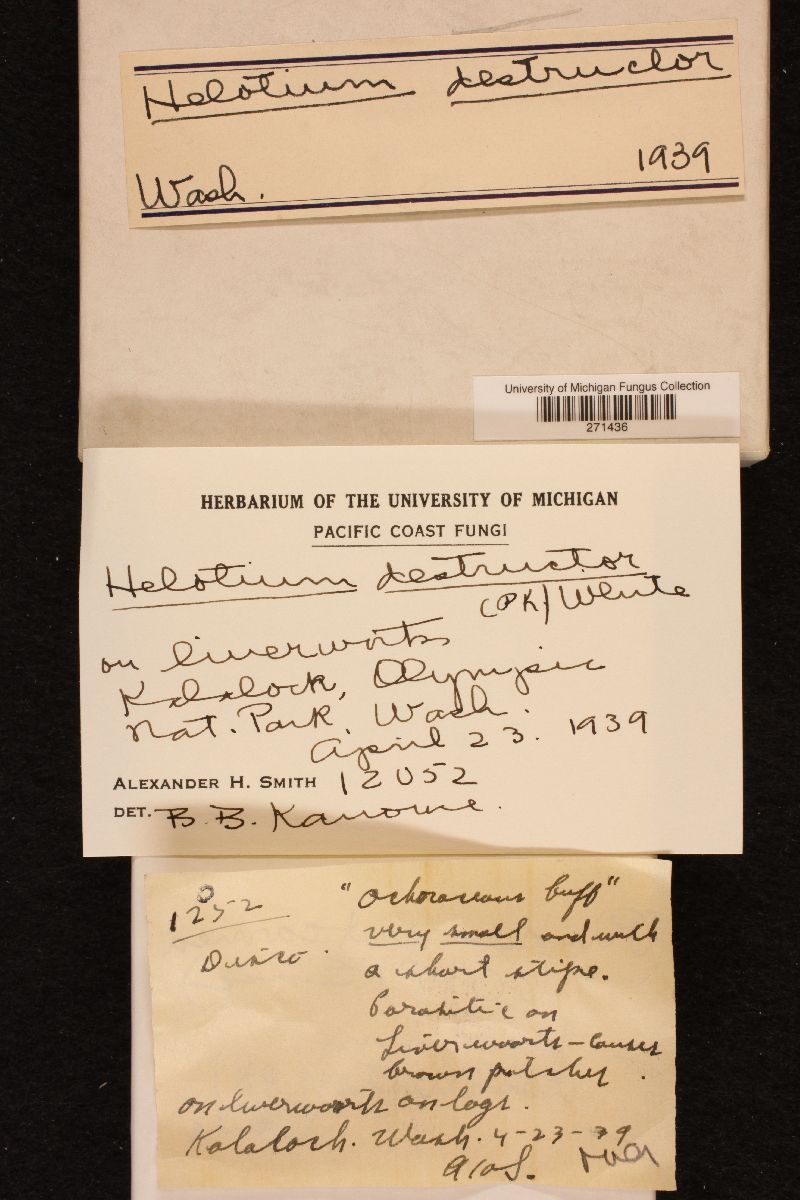 Helotium destructor
Wash. 1939
University of Michigan Fungus Collection
271436
HERBARIUM OF THE UNIVERSITY OF MICHIGAN
PACIFIC COAST FUNGI
Helotium destructor
(PK) White
on liverworts
Kalalock, Olympic
Nat. Park, Wash.
April 23. 1939
ALEXANDER H. SMITH 12052
DET. B. B. Kanouse.
12052
"Ochraceous buff"
very small and with
a short stipe.
Disco.
Parasitic on
Liverworts - causes
brown patches.
on liverworts on logs.
Kalaloch. Wash. 4-23-39
AHS.